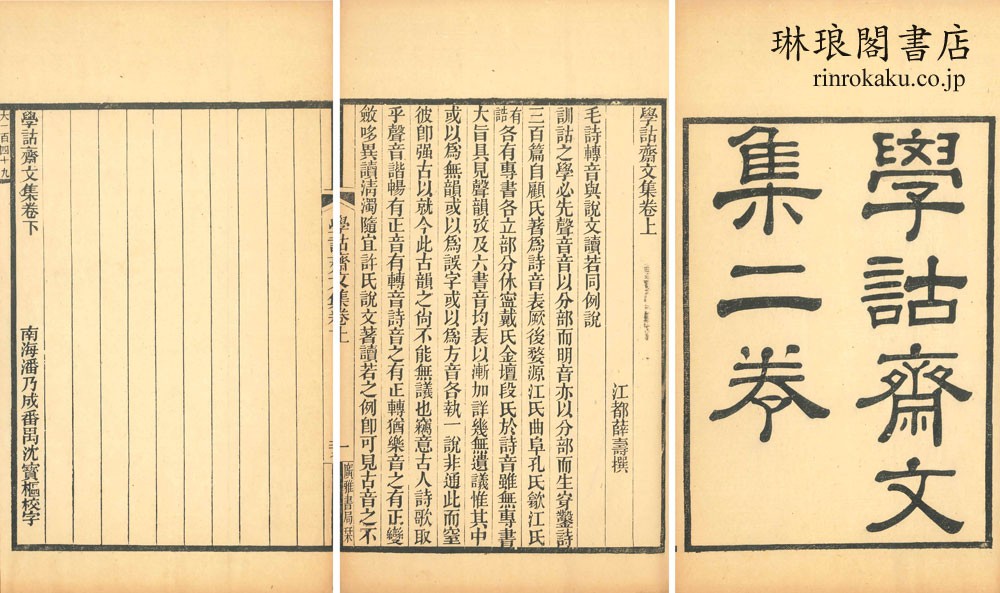 琳琅閣書店
rinrokaku.co.jp
學詁齋文
集二卷
學詁齋文集卷上
江都薛壽撰
毛詩轉音與說文讀若同例說
訓詁之學必先聲音音以分部而明音亦以分部而生穿鑿詩
三百篇自顧氏著爲詩音表厥後婺源江氏曲阜孔氏歙江氏
有誥各有專書各立部分休寧戴氏金壇段氏於詩音雖無專書
大旨具見聲韻攷及六書音均表以漸加詳幾無遺議惟其中
或以爲無韻或以爲誤字或以爲方音各執一說非通此而窒
彼卽强古以就今此古韻之尙不能無議也竊意古人詩歌取
乎聲音諧暢有正音有轉音詩音之有正轉猶樂音之有正變
斂哆異讀淸濁隨宜許氏說文著讀若之例卽可見古音之不
學詁齋文集卷上
一
廣雅書局栞
學詁齋文集卷下
南海潘乃成番禺沈寶樞校字
大一百四十九